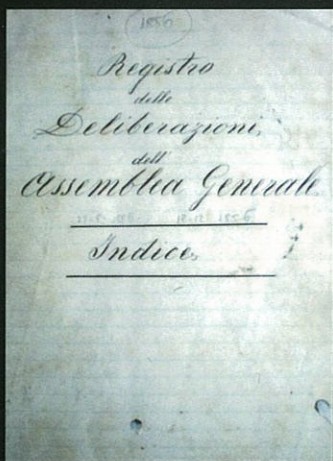 1856
Registro
delle
Deliberazioni,
dell'
Assemblea Generale
Indice,